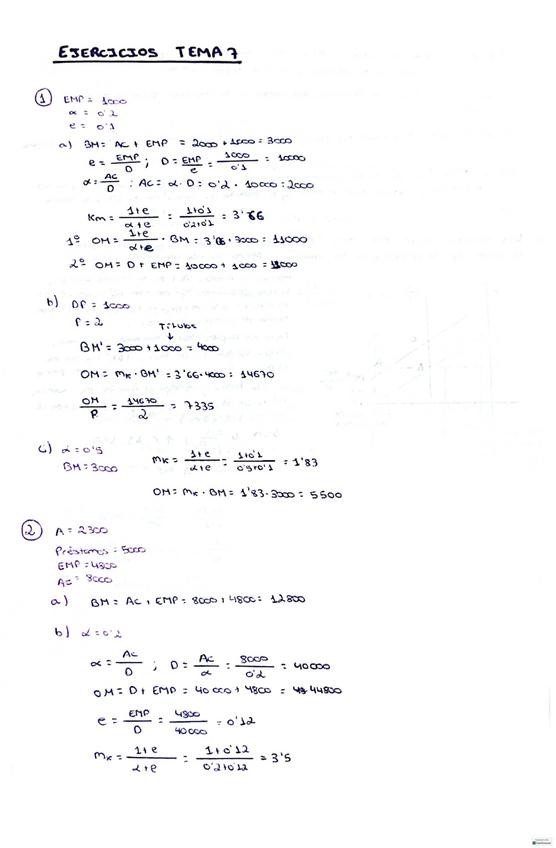 EJERCICIOS TEMA 7
1 EMP = 1000
α = 0'2
e = 0'1
a) BM = AC + EMP = 2000 + 1000 = 3000
e = EMP/D ; D = EMP/e = 1000/0'1 = 10000
α = AC/D ; AC = α · D = 0'2 · 10000 = 2000
Km = 1+e/α+e = 1+0'1/0'2+0'1 = 3'66
1º OM = 1+e/α+e · BM = 3'66 · 3000 = 11000
2º OM = D + EMP = 10000 + 1000 = 11000
b) DP = 1000
P = 2
Títulos
↓
BM' = 3000 + 1000 = 4000
OM = mk · BM' = 3'66 · 4000 = 14670
OM/P = 14670/2 = 7335
c) α = 0'5
BM = 3000
mk = 1+e/α+e = 1+0'1/0'5+0'1 = 1'83
OM = mk · BM = 1'83 · 3000 = 5500
2 A = 2300
Préstamos = 5000
EMP = 4800
AC = 8000
a) BM = AC + EMP = 8000 + 4800 = 12800
b) α = 0'2
α = AC/D ; D = AC/α = 8000/0'2 = 40000
OM = D + EMP = 40000 + 4800 = 44800
e = EMP/D = 4800/40000 = 0'12
mk = 1+e/α+e = 1+0'12/0'2+0'12 = 3'5